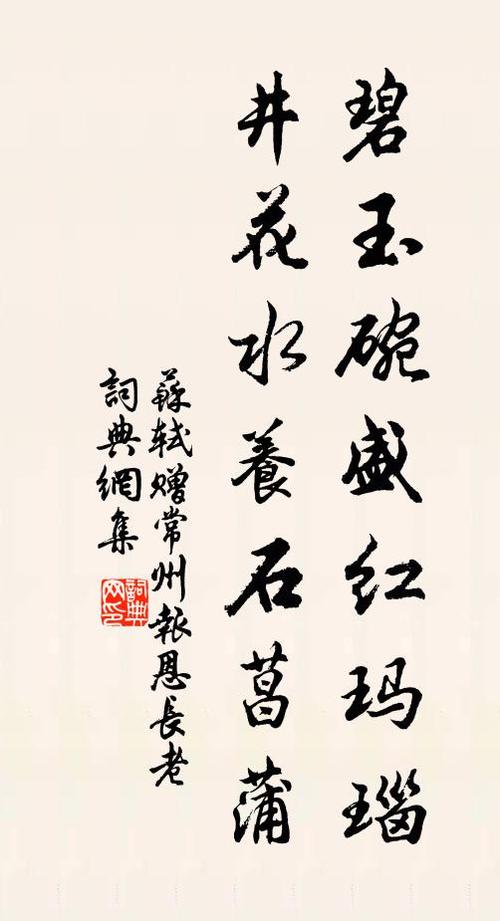 碧玉碗盛红玛瑙
井花水養石菖蒲
蘇軾赠常州報恩長老
詞典網集
詞典网印